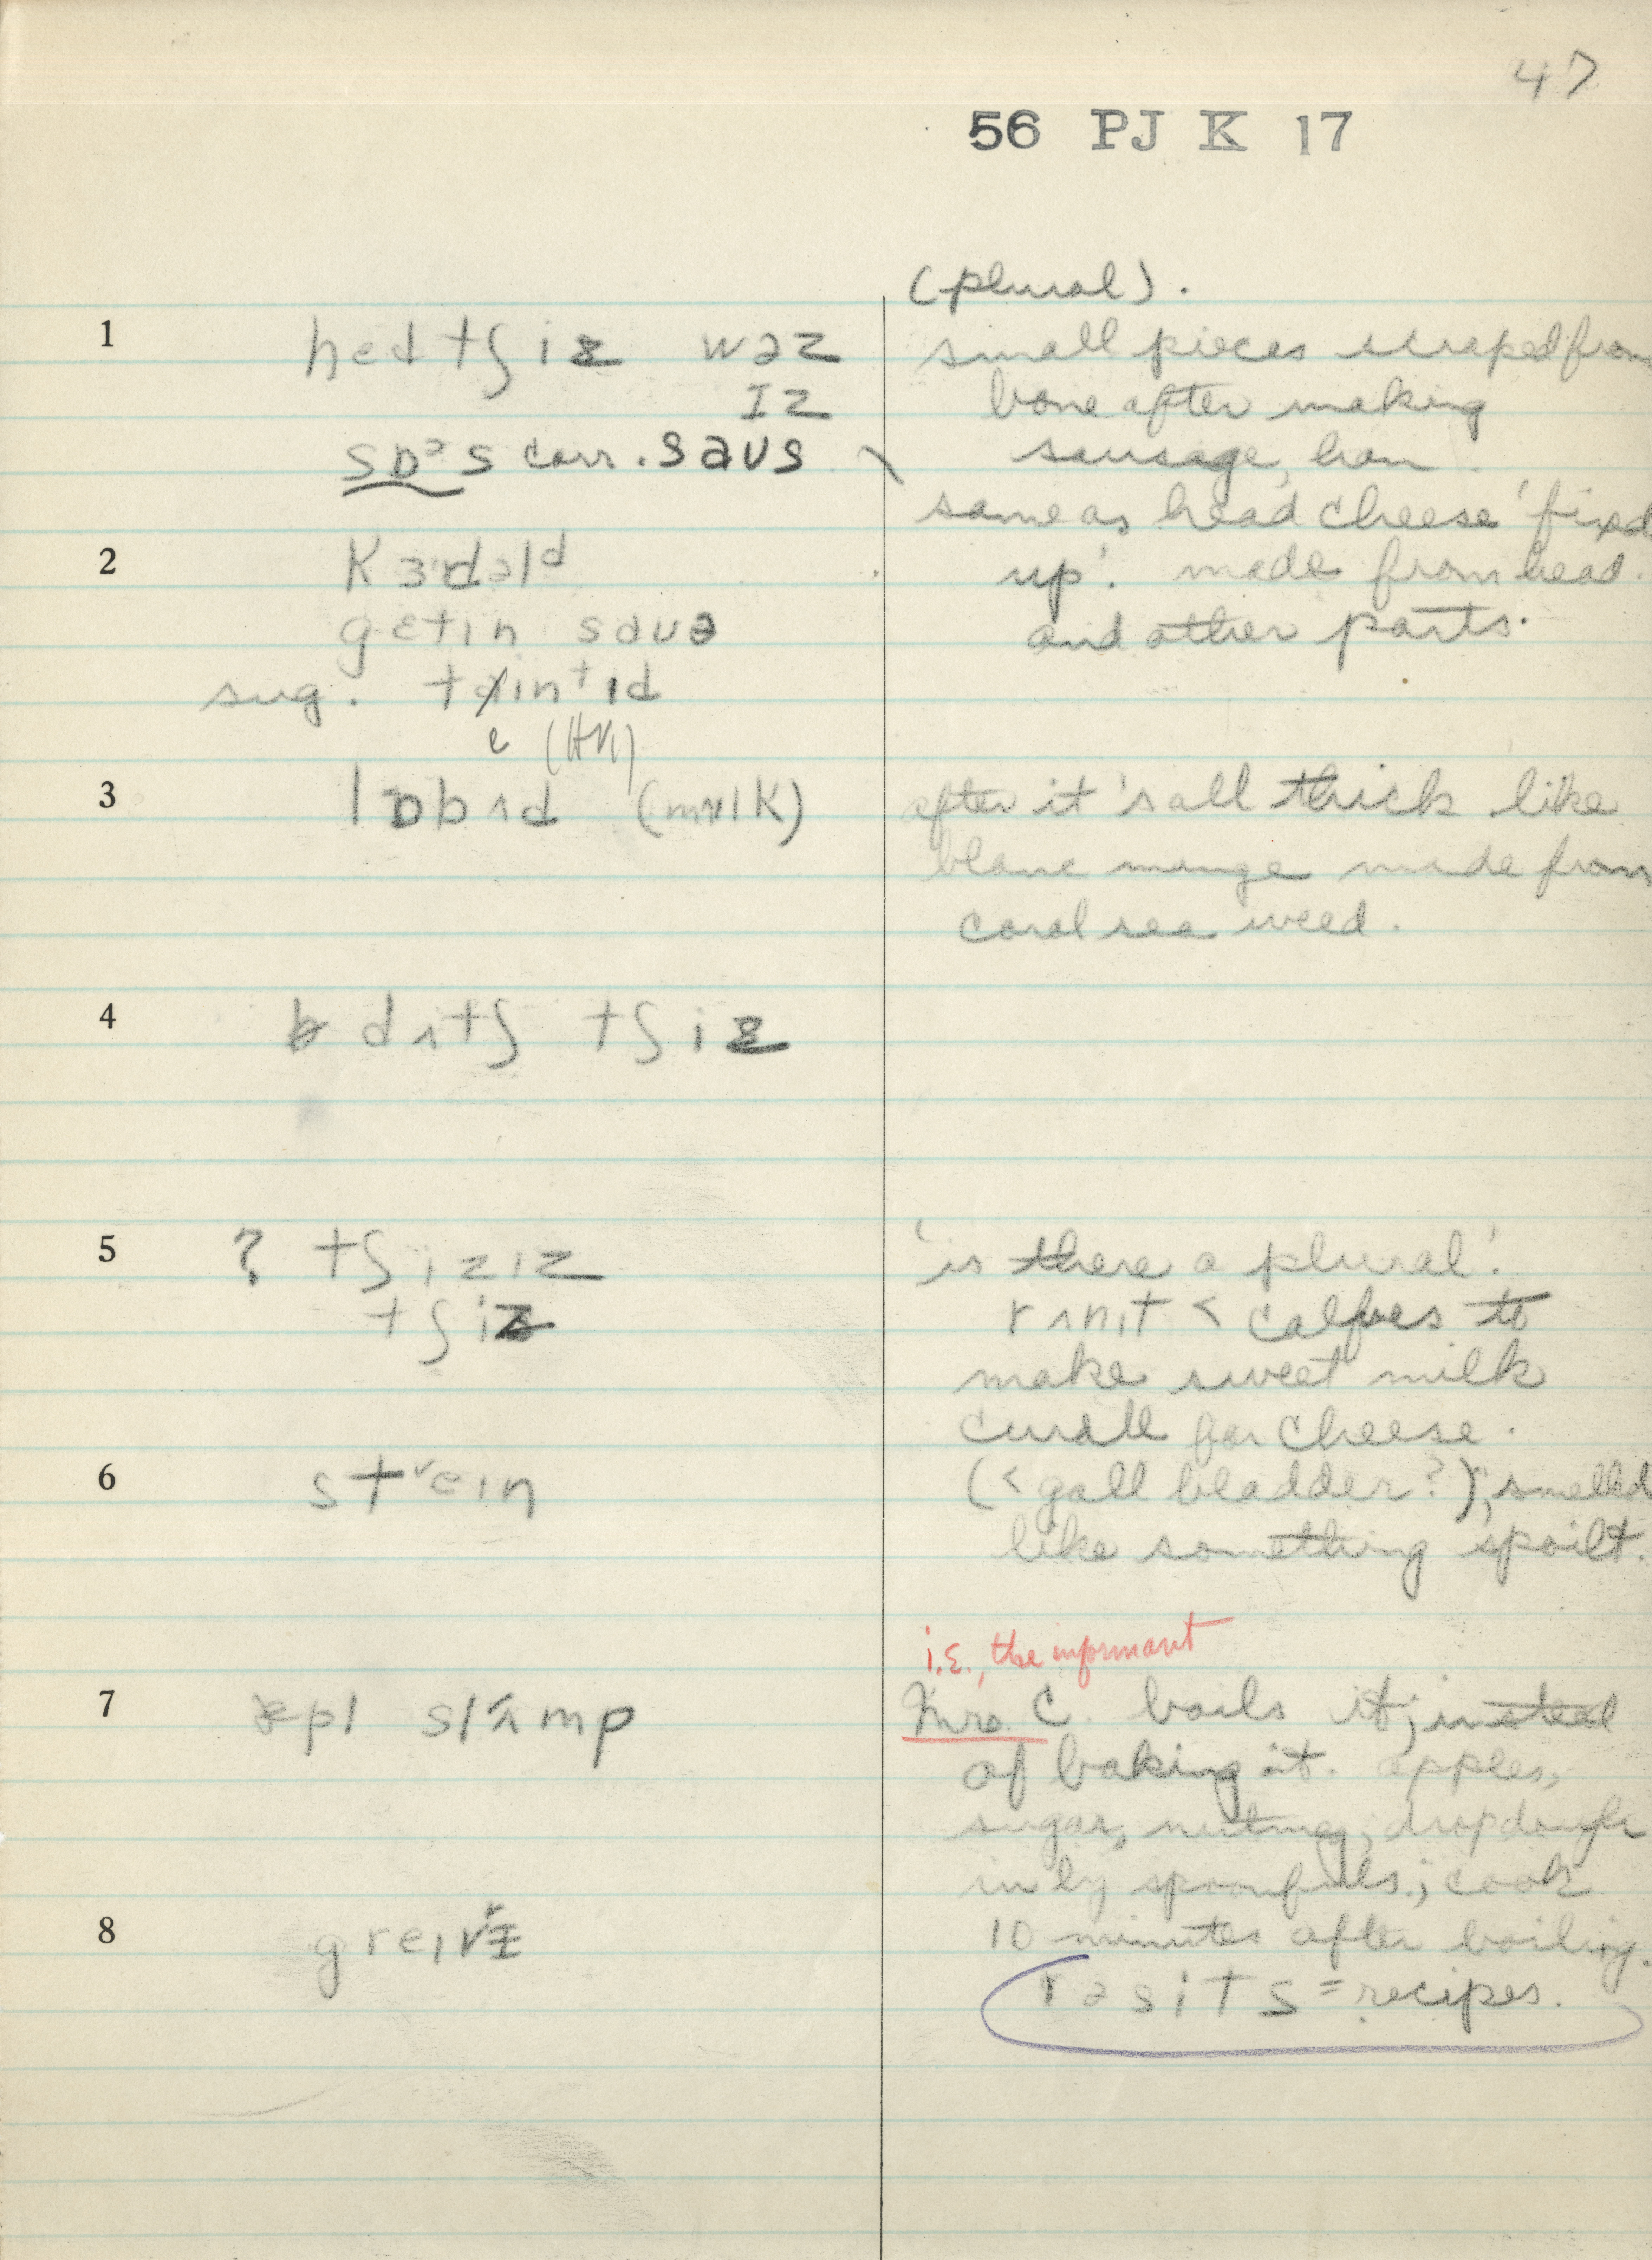 47
56 PJ K 17
(plural).
1 hɛdtʃiz wəz
ɪz
sɒᵊs corr. saʊs
small pieces scraped from
bone after making
sausage,
same as head cheese 'fixed
up'. made from head
and other parts.
2 kɜdəlᵈ
gɛtɪn saʊə
sug. teɪnᵗɪd
e
3 lɒbɜd (mɪlk)
after it's all thick like
blanc mange made from
coral sea weed.
4 dʌtʃ tʃiz
5 ? tʃizɪz
tʃiz
'is there a plural'.
rʌnɪt < calfves to
make sweet milk
curdle for cheese.
6 streɪn
(< gall bladder?); smelled
like something spoilt.
i.e., the informant
7 æpl slʌmp
Mrs. C. boils it; instead
of baking it. apples,
sugar, nutmeg; drop dough
in by spoonfuls; cook
8 greɪvɪ
10 minutes after boiling.
rəsits = recipes.